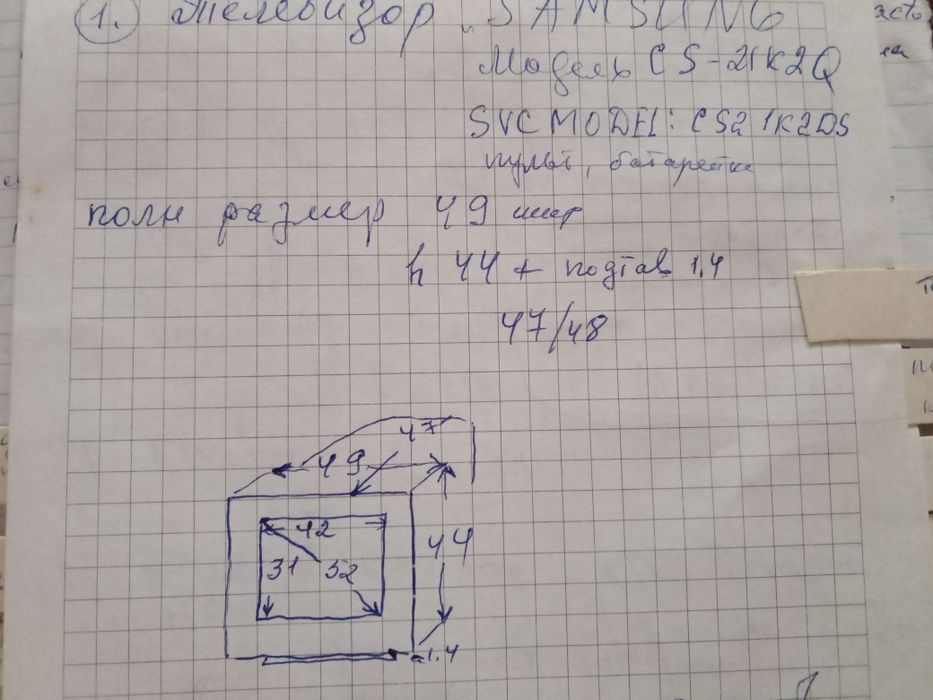 1. Телевизор „SAMSUNG
Модель CS-21K2Q
SVC MODEL: CS21K2DS
пульт, батарейки
полн размер 49 шир
h 44 + подтав 1,4
47/48
47
49
42
44
31 52
1.4